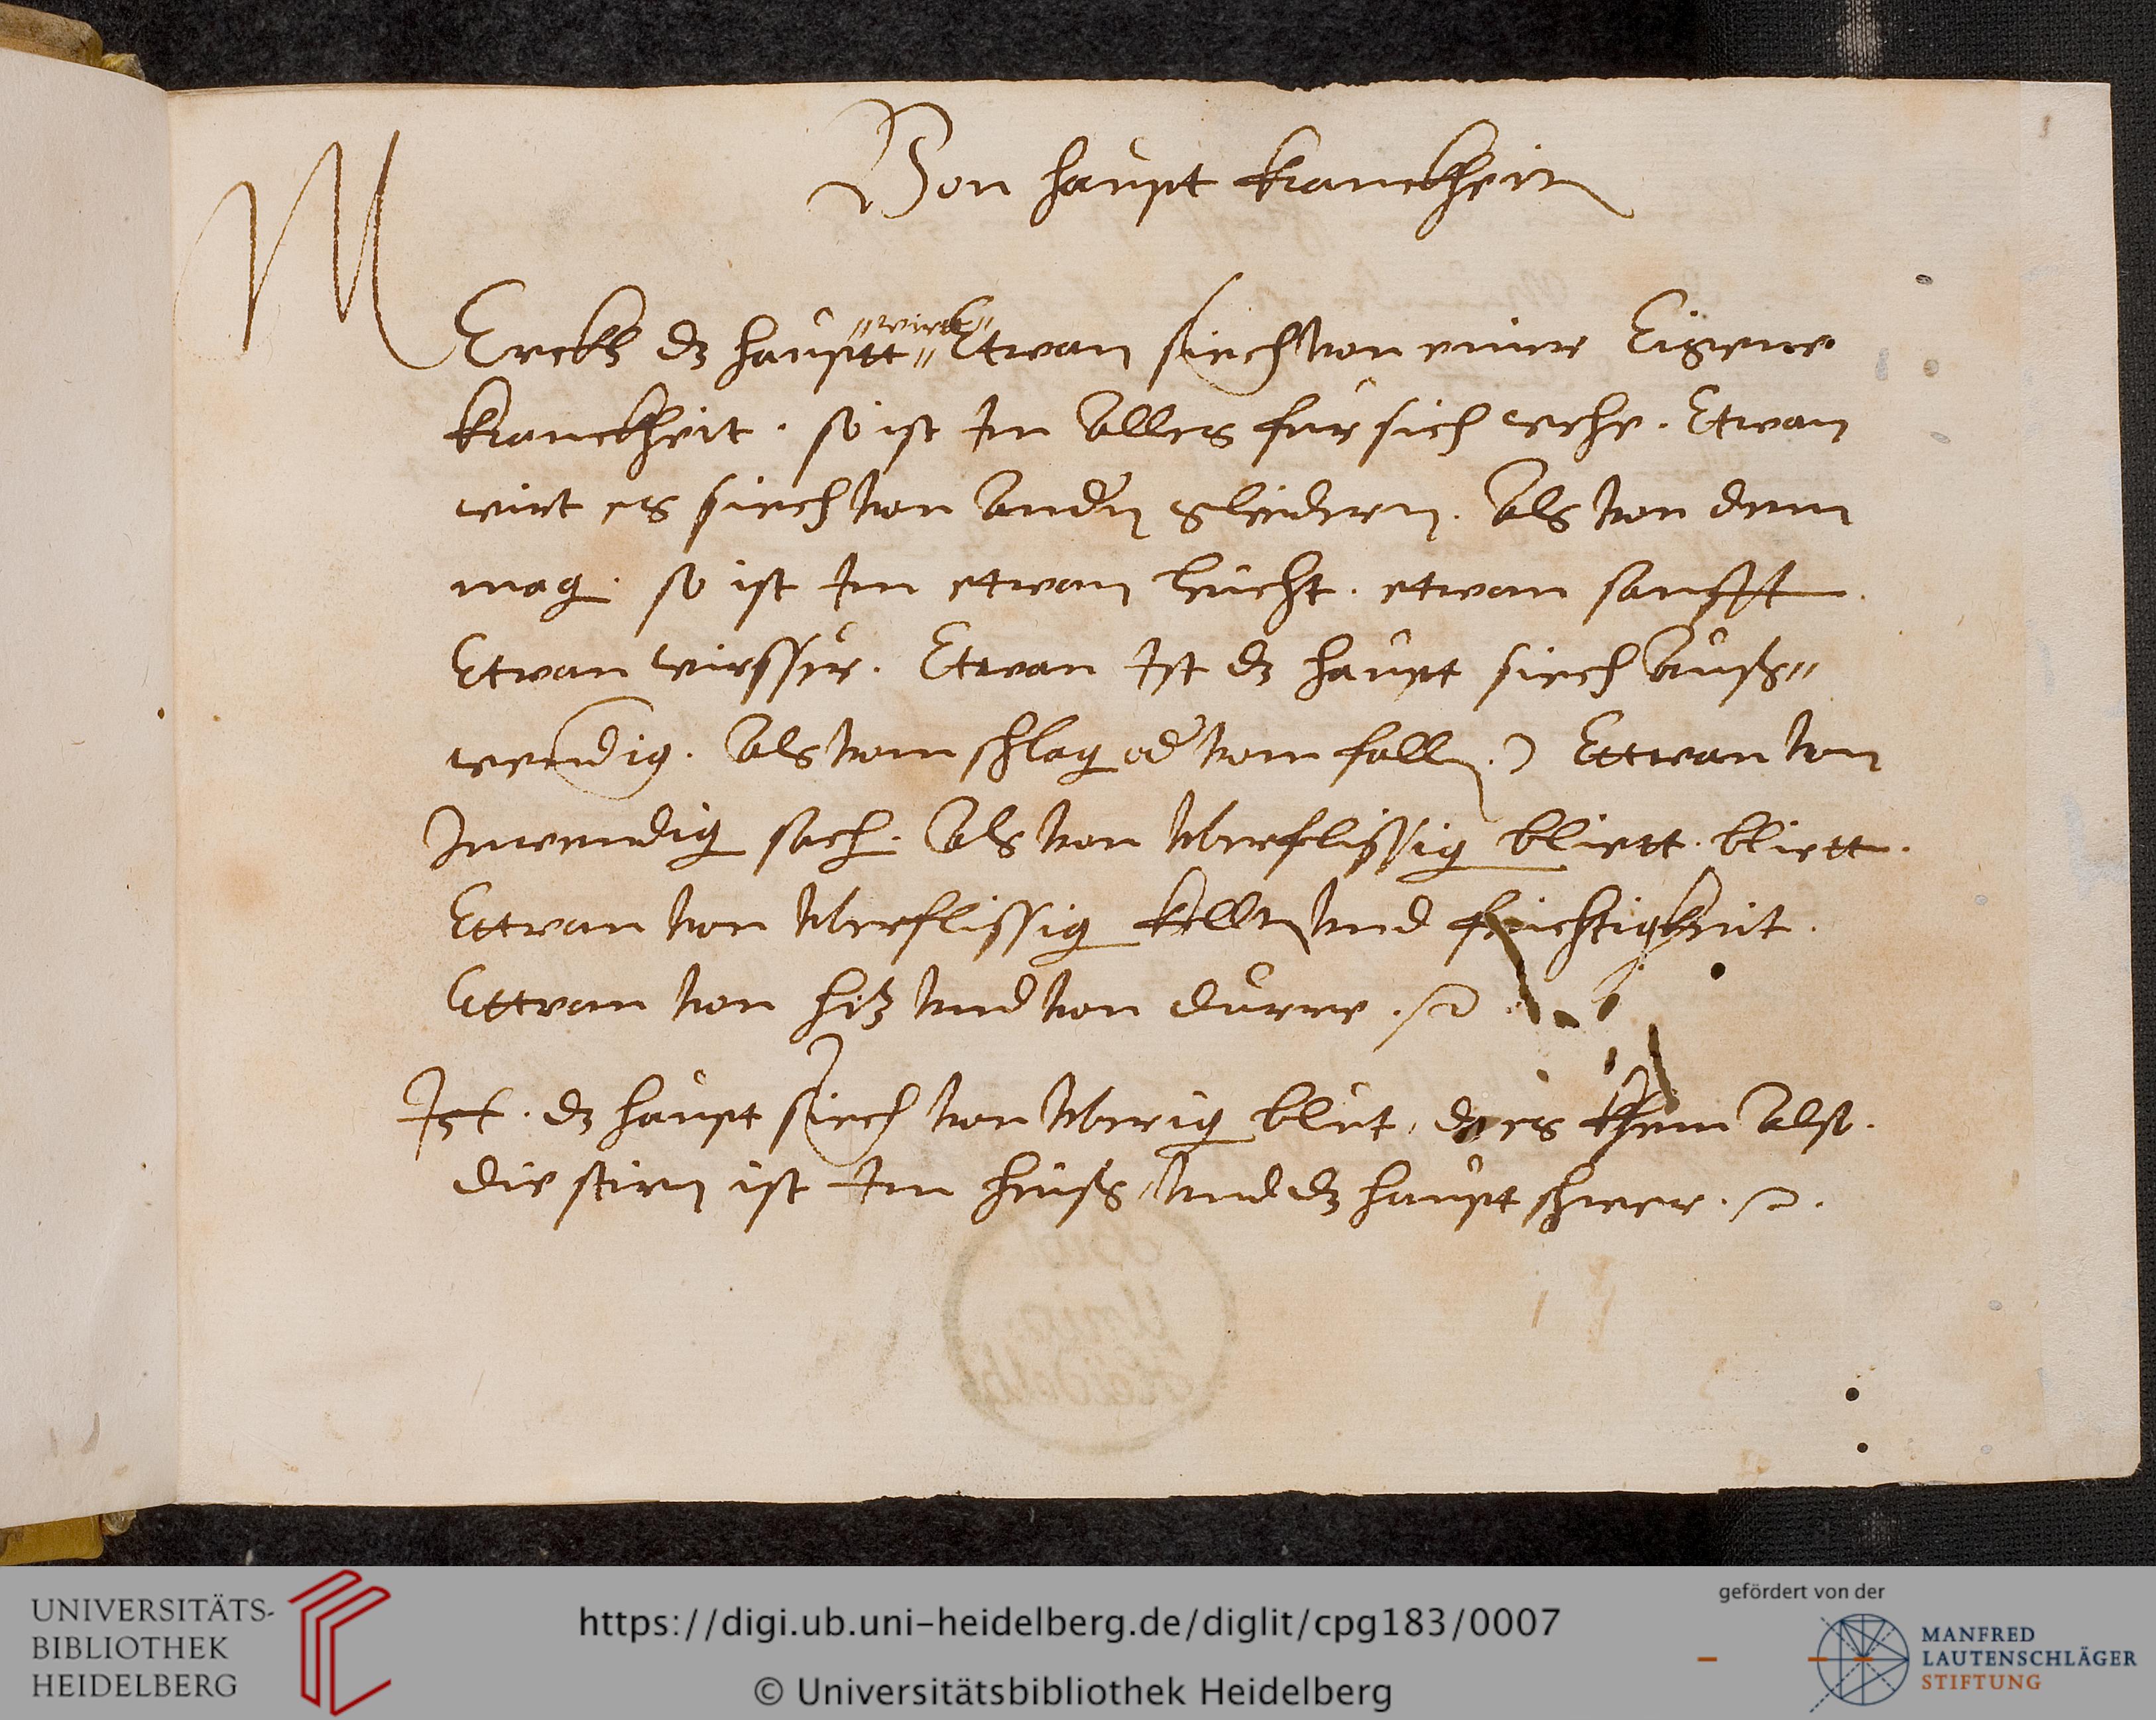 Von haupt kranckheit
MErckh dz hauptt "wirt" Etwan siech von einer Eigene
kranckheit . so ist Im alles für sich wehe . Etwan
wirt es siech von andern gleidern . als von dem
mag . so ist Im etwan leicht . etwan sanfft .
Etwan wirsser . Etwan Ist dz haupt siech auß"
wendig . als vom schlag od vom fall . Ettwan von
Inwendig sach . Als von vberflissig bliett . bliett .
Ettwan von vberflissig kelltt vnd feichtigkeit .
Ettwan von hitz vnd von dürre .
Ist . dz haupt siech von vberig blut , do es khem also .
die stirn ist Im heiß , vnd dz haupt schwer .
UNIVERSITÄTS-
BIBLIOTHEK
HEIDELBERG
https://digi.ub.uni-heidelberg.de/diglit/cpg183/0007
© Universitätsbibliothek Heidelberg
gefördert von der
MANFRED
LAUTENSCHLÄGER
STIFTUNG